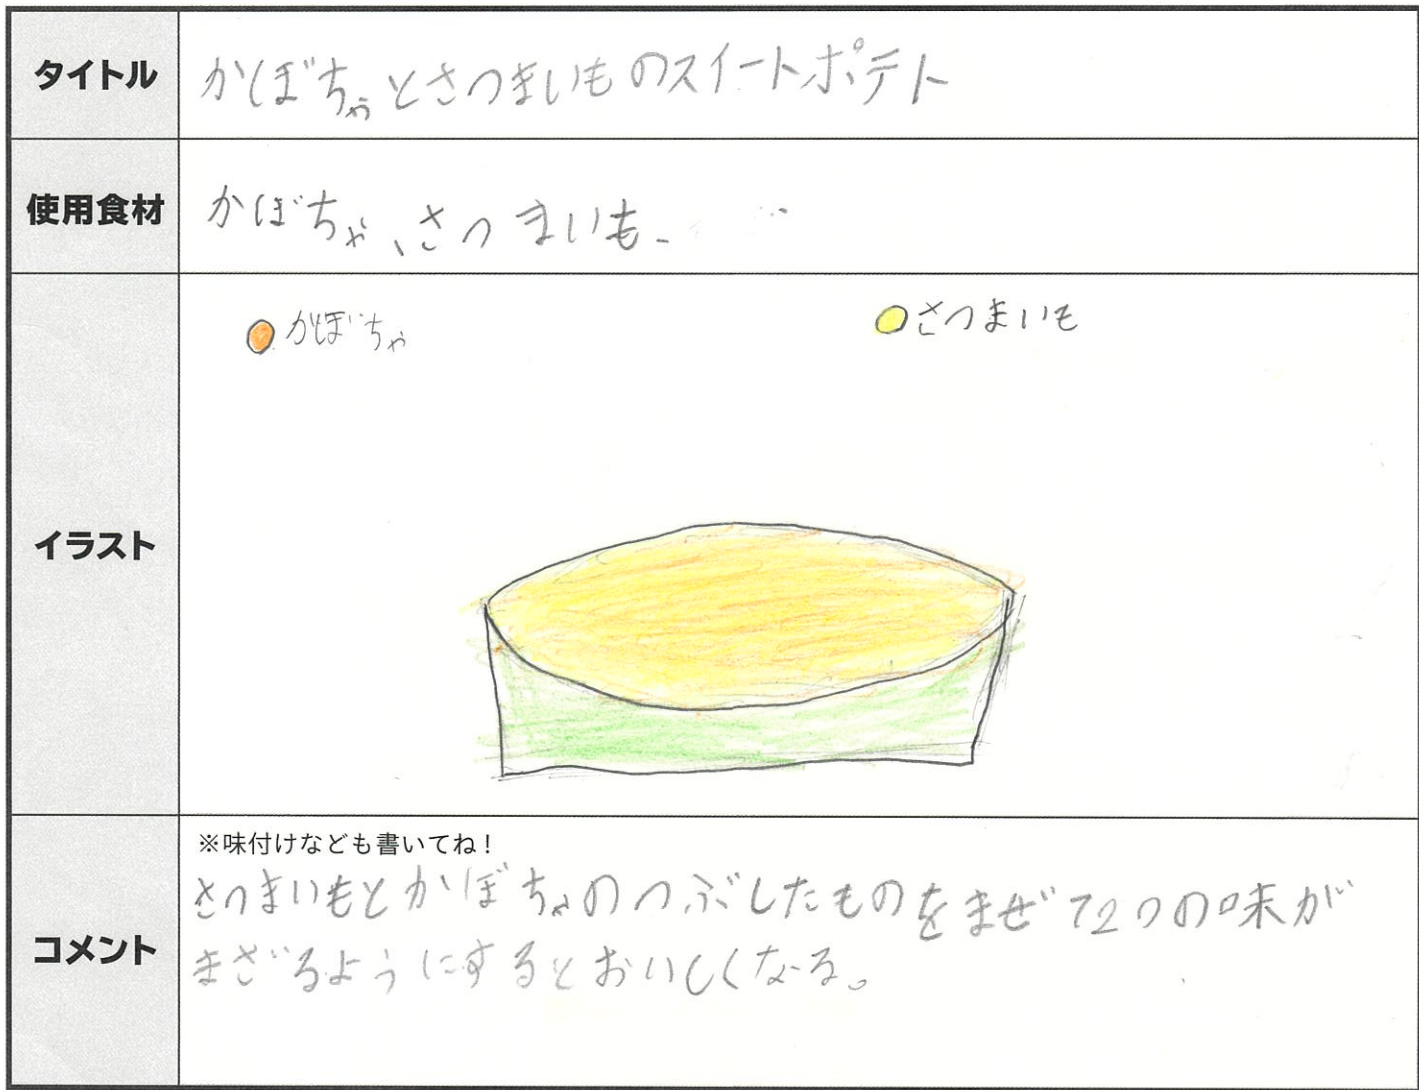 タイトル
かぼちゃとさつまいものスイートポテト
使用食材
かぼちゃ、さつまいも
イラスト
かぼちゃ
さつまいも
コメント
※味付けなども書いてね！
さつまいもとかぼちゃのつぶしたものをまぜて2つの味が
まざるようにするとおいしくなる。